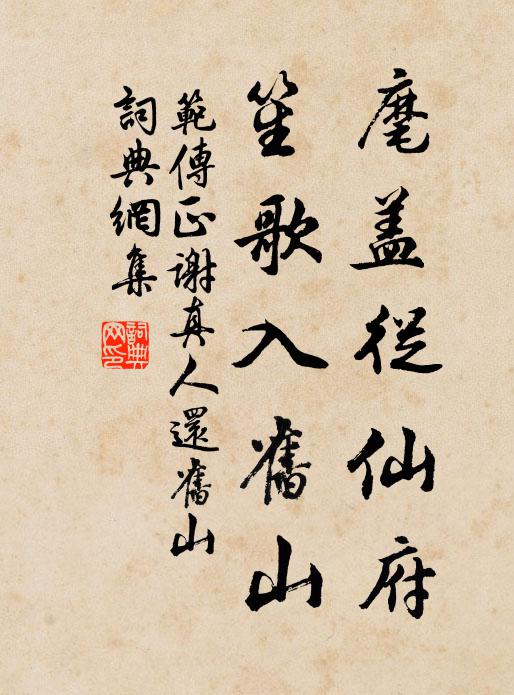 麾盖從仙府
笙歌入舊山
範傳正谢真人還舊山
詞典網集
詞典網印